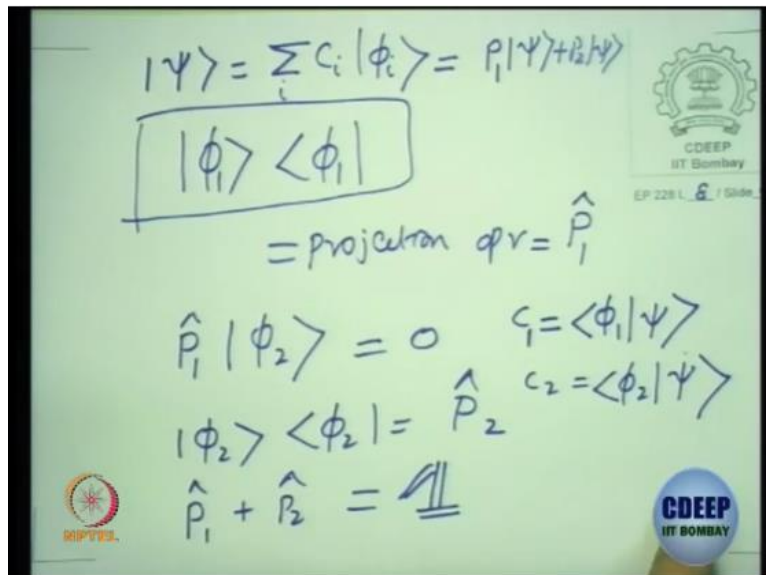 |ψ⟩ = Σ_i C_i |ϕ_i⟩ = P_1|ψ⟩+P_2|ψ⟩
|ϕ_1⟩ ⟨ϕ_1|
CDEEP
IIT Bombay
EP 228 L 6 / Slide
= projection opr = P̂_1
P̂_1 |ϕ_2⟩ = 0 C_1 = ⟨ϕ_1|ψ⟩
|ϕ_2⟩ ⟨ϕ_2| = P̂_2 C_2 = ⟨ϕ_2|ψ⟩
P̂_1 + P̂_2 = 𝟙
NPTEL
CDEEP
IIT BOMBAY